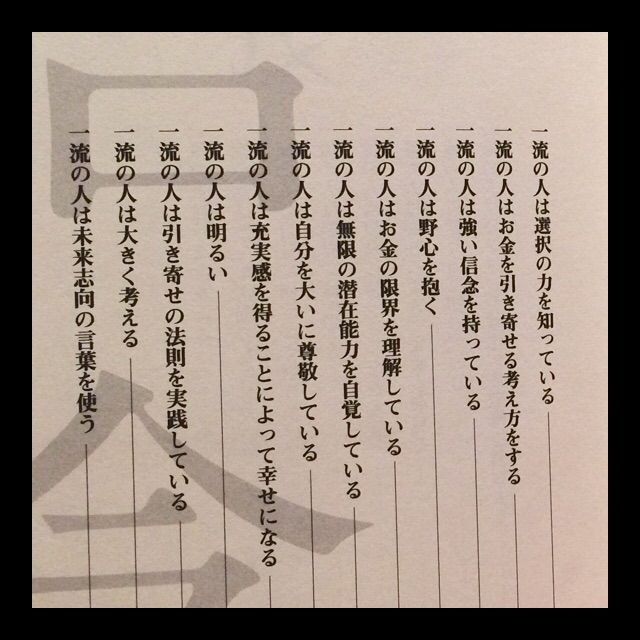 一流の人は選択の力を知っている
一流の人はお金を引き寄せる考え方をする
一流の人は強い信念を持っている
一流の人は野心を抱く
一流の人はお金の限界を理解している
一流の人は無限の潜在能力を自覚している
一流の人は自分を大いに尊敬している
一流の人は充実感を得ることによって幸せになる
一流の人は明るい
一流の人は引き寄せの法則を実践している
一流の人は大きく考える
一流の人は未来志向の言葉を使う